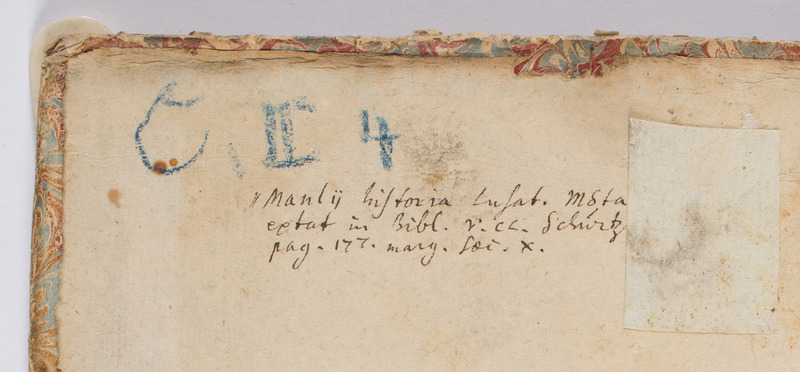 C, II 4
" Manlij historia Lusat. MSta
extat in Bibl. V. CL. Schürtz
pag. 177. marg. Sæc. X.